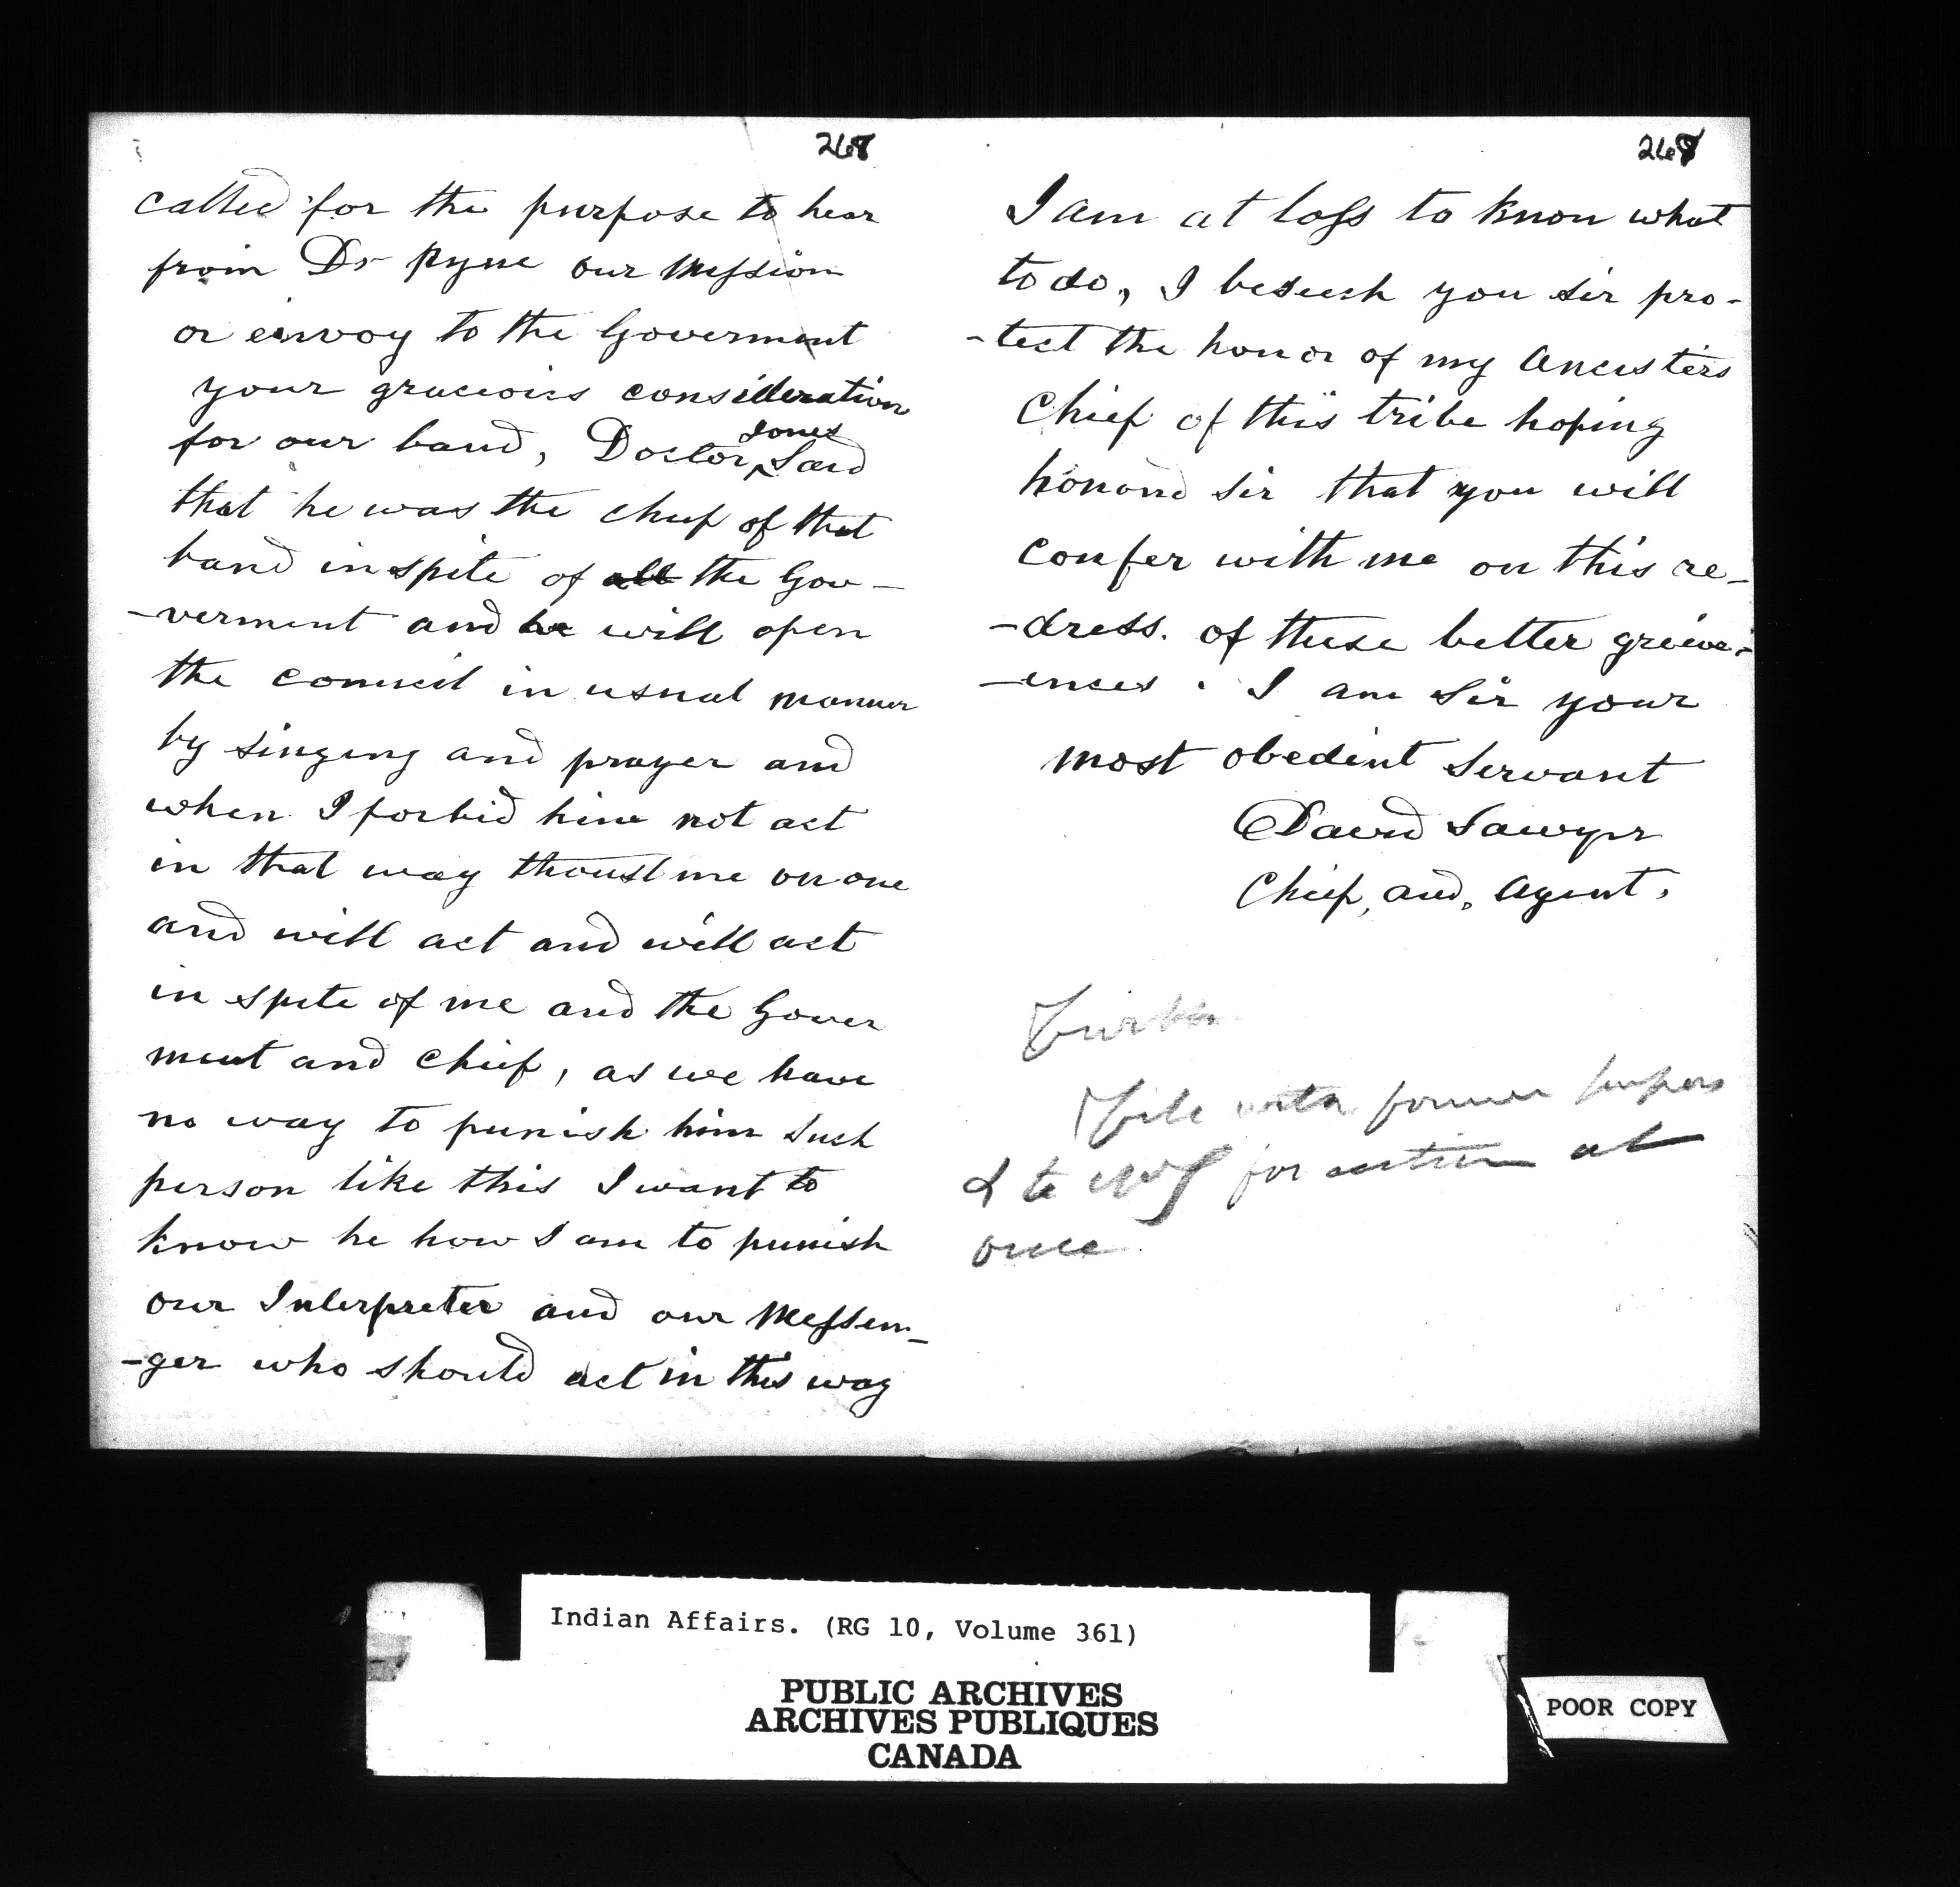 268
called for the purpose to hear
from Dr Pyne our Mission
or envoy to the Goverment
your gracioiss consideration
for our band, Doctor Jones Said
that he was the chief of that
band in spite of all the Gov-
-verment and he will open
the council in usual manner
by singing and prayer and
when I forbid him not act
in that way thoust me on one
and will act and will act
in spite of me and the Gover
ment and Chief, as we have
no way to punish him such
person like this I want to
know he how I am to punish
our Interpreter and our Messen-
-ger who should act in this way
268
I am at loss to know what
to do, I beseech you sir pro-
-tect the honor of my Ancesters
Chief of this tribe hoping
honord sir that you will
confer with me on this re-
-dress. of these better greive-
-ences. I am Sir your
most obedient Servant
David Sawyer
Chief, and, Agent.
File with former papers
& to for action at
once
Indian Affairs. (RG 10, Volume 361)
PUBLIC ARCHIVES
ARCHIVES PUBLIQUES
CANADA
POOR COPY